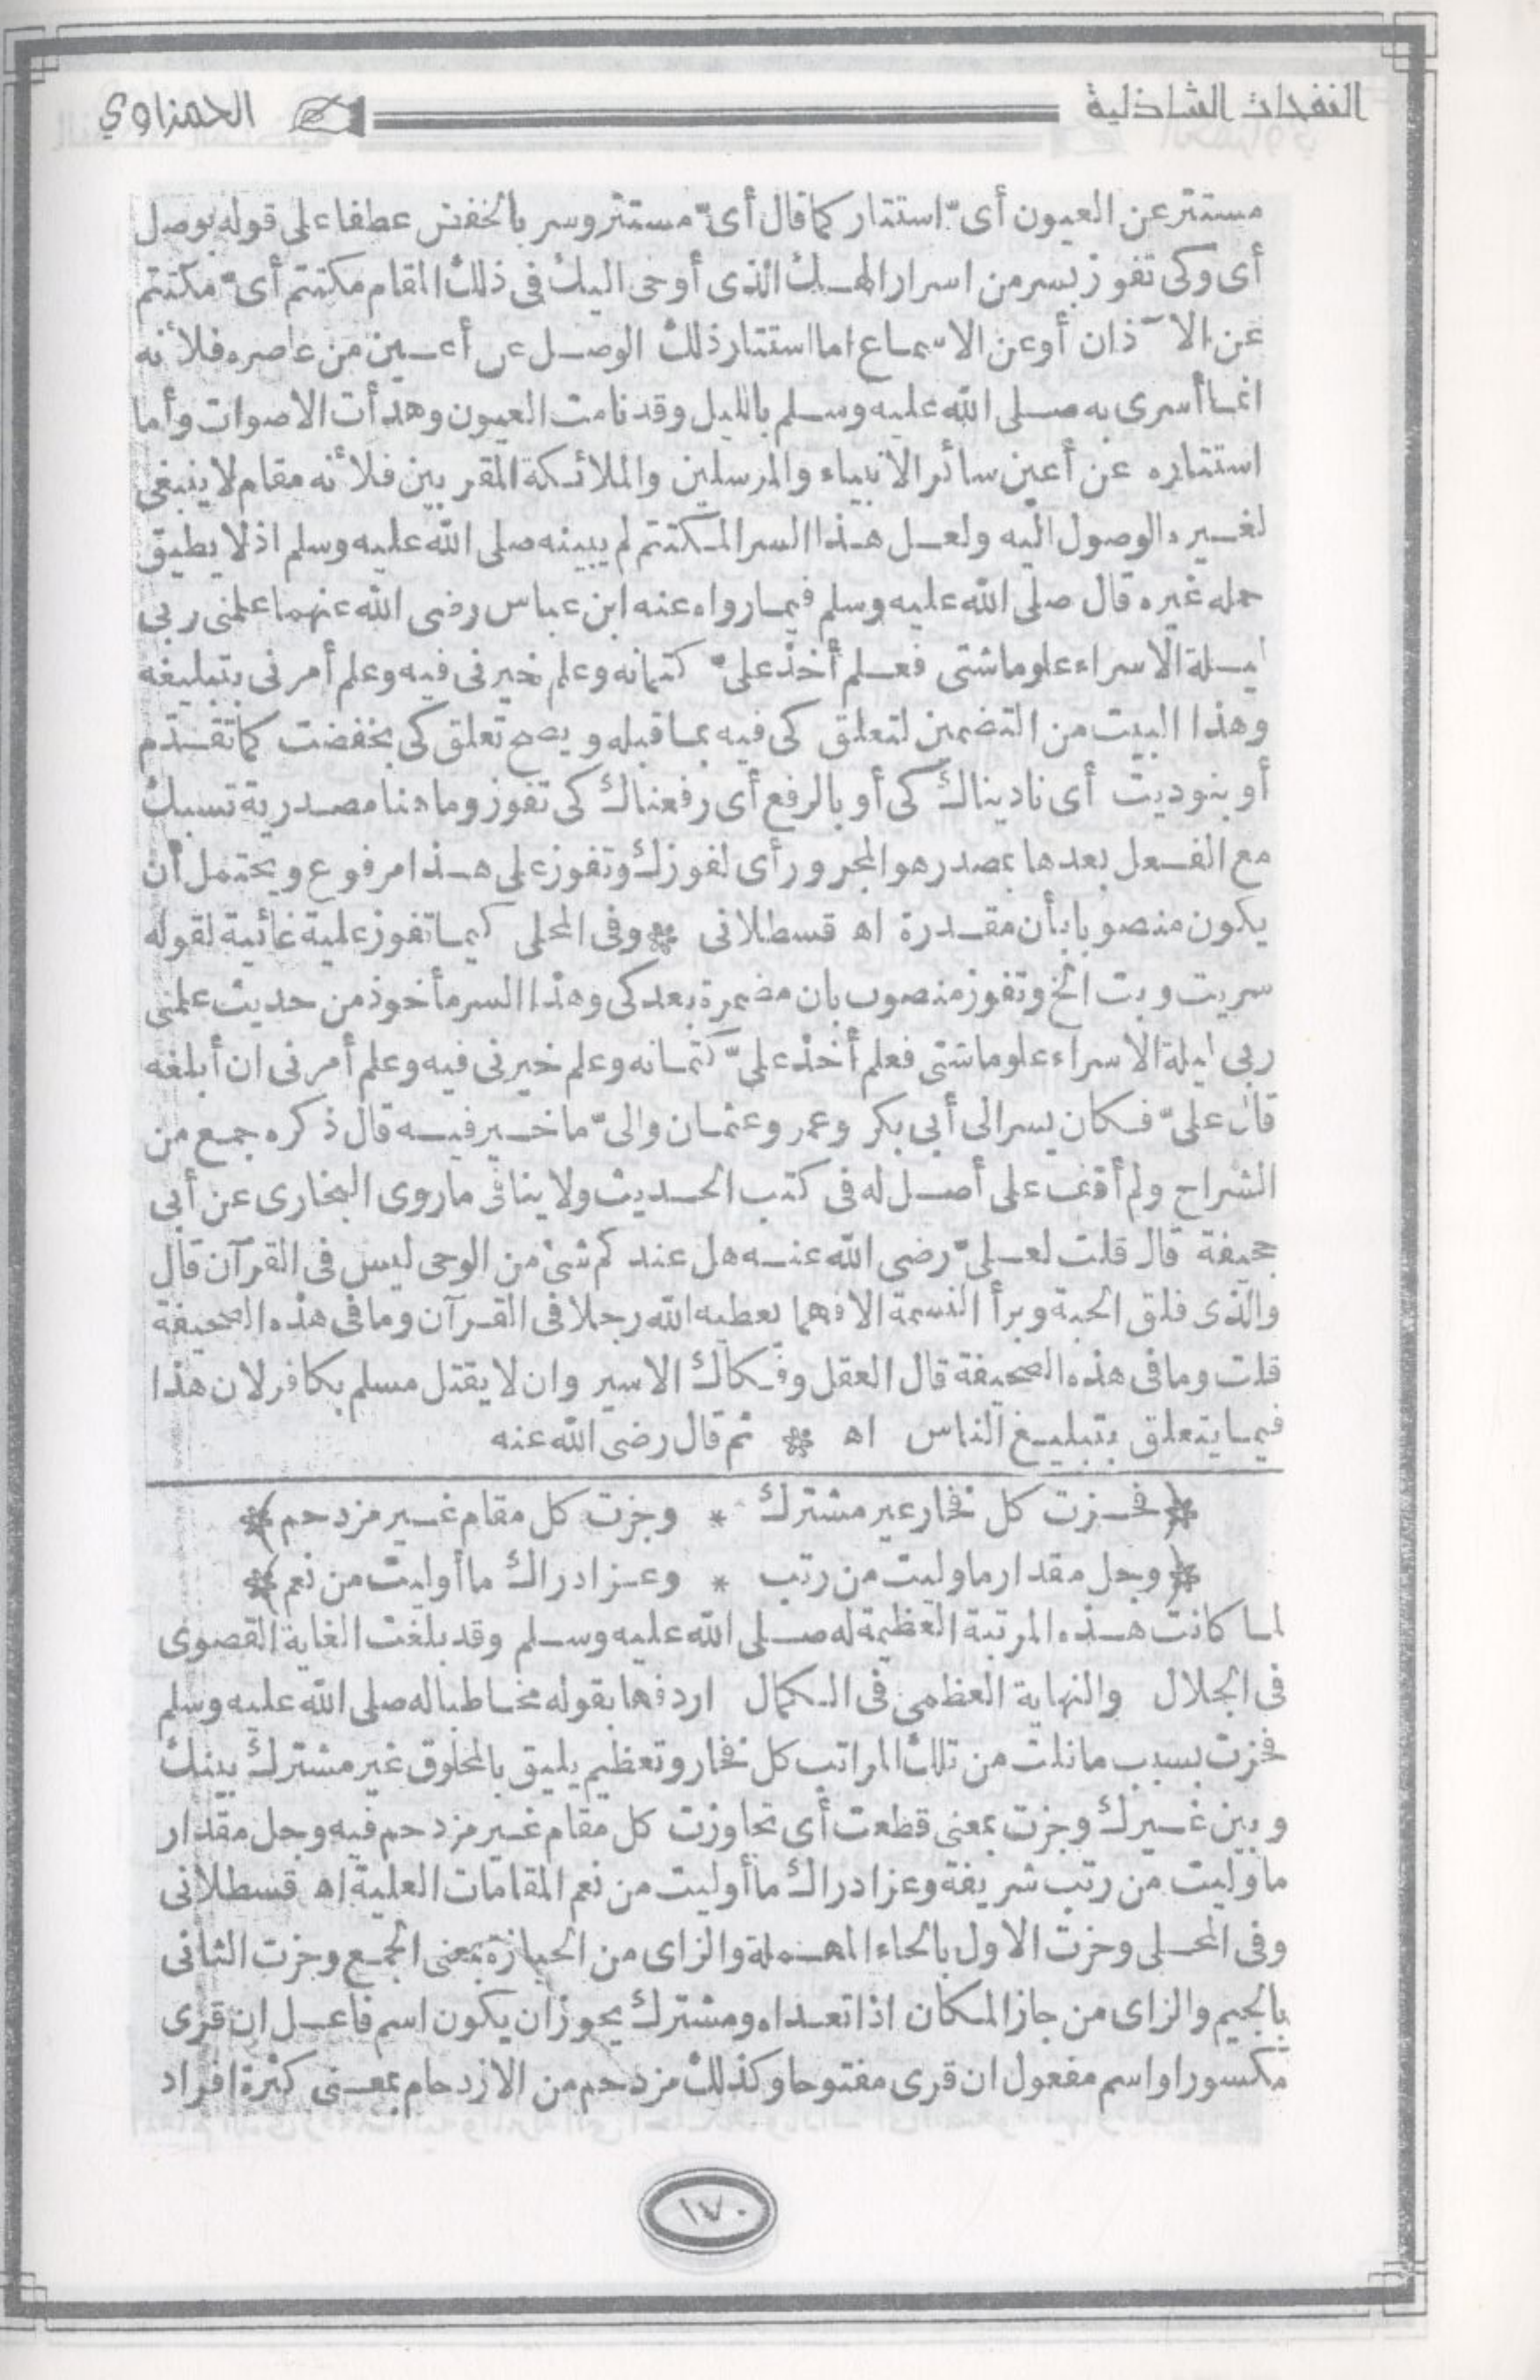 النفحات الشاذلية
الحمزاوي
مستتر عن العيون أى استتار كما قال أىّ مستتر وسر بالخفض عطفا على قوله بوصل
أى وكى تفوز بسر من اسرار الهك الذى أوحى اليك فى ذلك المقام مكتتم أىّ مكتتم
عن الآذان أو عن الاسماع اما استتار ذلك الوصل عن أعين من عاصره فلأنه
انما أسرى به صلى الله عليه وسلم بالليل وقد نامت العيون وهدأت الاصوات وأما
استتاره عن أعين سائر الانبياء والمرسلين والملائكة المقربين فلأنه مقام لا ينبغى
لغيره الوصول اليه ولعل هذا السر المكتتم لم يبينه صلى الله عليه وسلم اذ لا يطيق
حمله غيره قال صلى الله عليه وسلم فيما رواه عنه ابن عباس رضى الله عنهما علمنى ربى
ليلة الاسراء علوما شتى فعلم أخذ علىّ كتمانه وعلم خيرنى فيه وعلم أمرنى بتبليغه
وهذا البيت من التضمين لتعلق كى فيه بما قبله ويصح تعلق كى بخفضت كما تقدم
أو بنوديت أى ناديناك كى أو بالرفع أى رفعناك كى تفوز وما هنا مصدرية تسبك
مع الفعل بعدها بمصدر هو المجرور أى لفوزك وتفوز على هذا مرفوع ويحتمل أن
يكون منصوبا بأن مقدرة اه قسطلانى * وفى المحلى كيما تفوز علية غائية لقوله
سريت وبت الخ وتفوز منصوب بان مضمرة بعد كى وهذا السر مأخوذ من حديث علمنى
ربى ليلة الاسراء علوما شتى فعلم أخذ علىّ كتمانه وعلم خيرنى فيه وعلم أمرنى ان أبلغه
قال علىّ فكان يسر الى أبى بكر وعمر وعثمان والىّ ما خير فيه قال ذكره جمع من
الشراح ولم أقف على أصل له فى كتب الحديث ولا ينافى ما روى البخارى عن أبى
جحيفة قال قلت لعلىّ رضى الله عنه هل عندكم شئ من الوحى ليس فى القرآن قال
والذى فلق الحبة وبرأ النسمة الا فهما يعطيه الله رجلا فى القرآن وما فى هذه الصحيفة
قلت وما فى هذه الصحيفة قال العقل وفكاك الاسير وان لا يقتل مسلم بكافر لان هذا
فيما يتعلق بتبليغ الناس اه * ثم قال رضى الله عنه
﴿فحزت كل فخار غير مشترك * وجزت كل مقام غير مزدحم﴾
﴿وجل مقدار ما وليت من رتب * وعز ادراك ما أوليت من نعم﴾
لما كانت هذه المرتبة العظيمة له صلى الله عليه وسلم وقد بلغت الغاية القصوى
فى الجلال والنهاية العظمى فى الكمال اردفها بقوله مخاطبا له صلى الله عليه وسلم
فحزت بسبب ما نلت من تلك المراتب كل فخار وتعظيم يليق بالمخلوق غير مشترك بينك
وبين غيرك وجزت بمعنى قطعت أى تجاوزت كل مقام غير مزدحم فيه وجل مقدار
ما وليت من رتب شريفة وعز ادراك ما أوليت من نعم المقامات العلية اه قسطلانى
وفى المحلى وحزت الاول بالحاء المهملة والزاى من الحيازة بمعنى الجمع وجزت الثانى
بالجيم والزاى من جاز المكان اذا تعداه ومشترك يجوز ان يكون اسم فاعل ان قرى
مكسورا واسم مفعول ان قرى مفتوحا وكذلك مزدحم من الازدحام بمعنى كثرة افراد
١٧٠